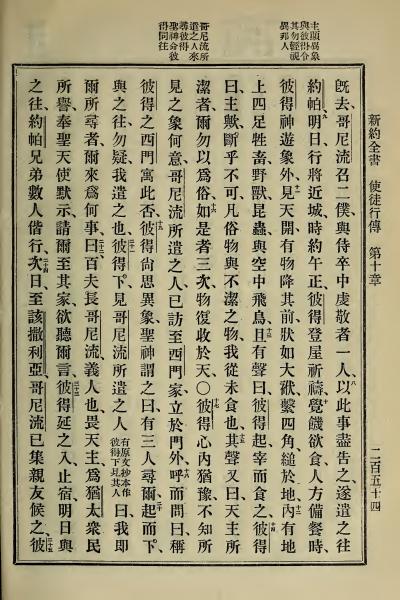 新約全書 使徒行傳 第十章 二百五十四
主顯異象
與彼得令
其勿輕視
異邦人
哥尼流所
遣之人來
尋彼得
聖神命彼
得同往
既去、哥尼流召二僕與侍卒中虔敬者一人、八以此事盡告之、遂遣之往
約帕、九明日行將近城時約午正彼得登屋祈禱、十覺饑欲食、人方備餐時、
彼得神遊象外、十一見天開有物降其前狀如大袱繫四角縋於地、十二內有地
上四足牲畜野獸昆蟲與空中飛鳥、十三且有聲曰彼得起宰而食之、十四彼得
曰主歟斷乎不可、凡俗物與不潔之物我從未食也、十五其聲又曰天主所
潔者爾勿以爲俗、十六如是者三次物復收於天、〇十七彼得心內猶豫不知所
見之象何意、哥尼流所遣之人已訪至西門家立於門外、十八呼而問曰稱
彼得之西門寓此否、十九彼得尙思異象聖神謂之曰有三人尋爾、二十起而下、
與之往勿疑、我遣之也、二十一彼得下、見哥尼流所遣之人有原文抄本作彼得下見其人曰我卽
爾所尋者爾來爲何事、二十二曰百夫長哥尼流義人也、畏天主爲猶太衆民
所譽、奉聖天使默示請爾至其家欲聽爾言、二十三彼得延之入止宿、明日與
之往、約帕兄弟數人偕行、二十四次日至該撒利亞、哥尼流已集親友候之、二十五彼